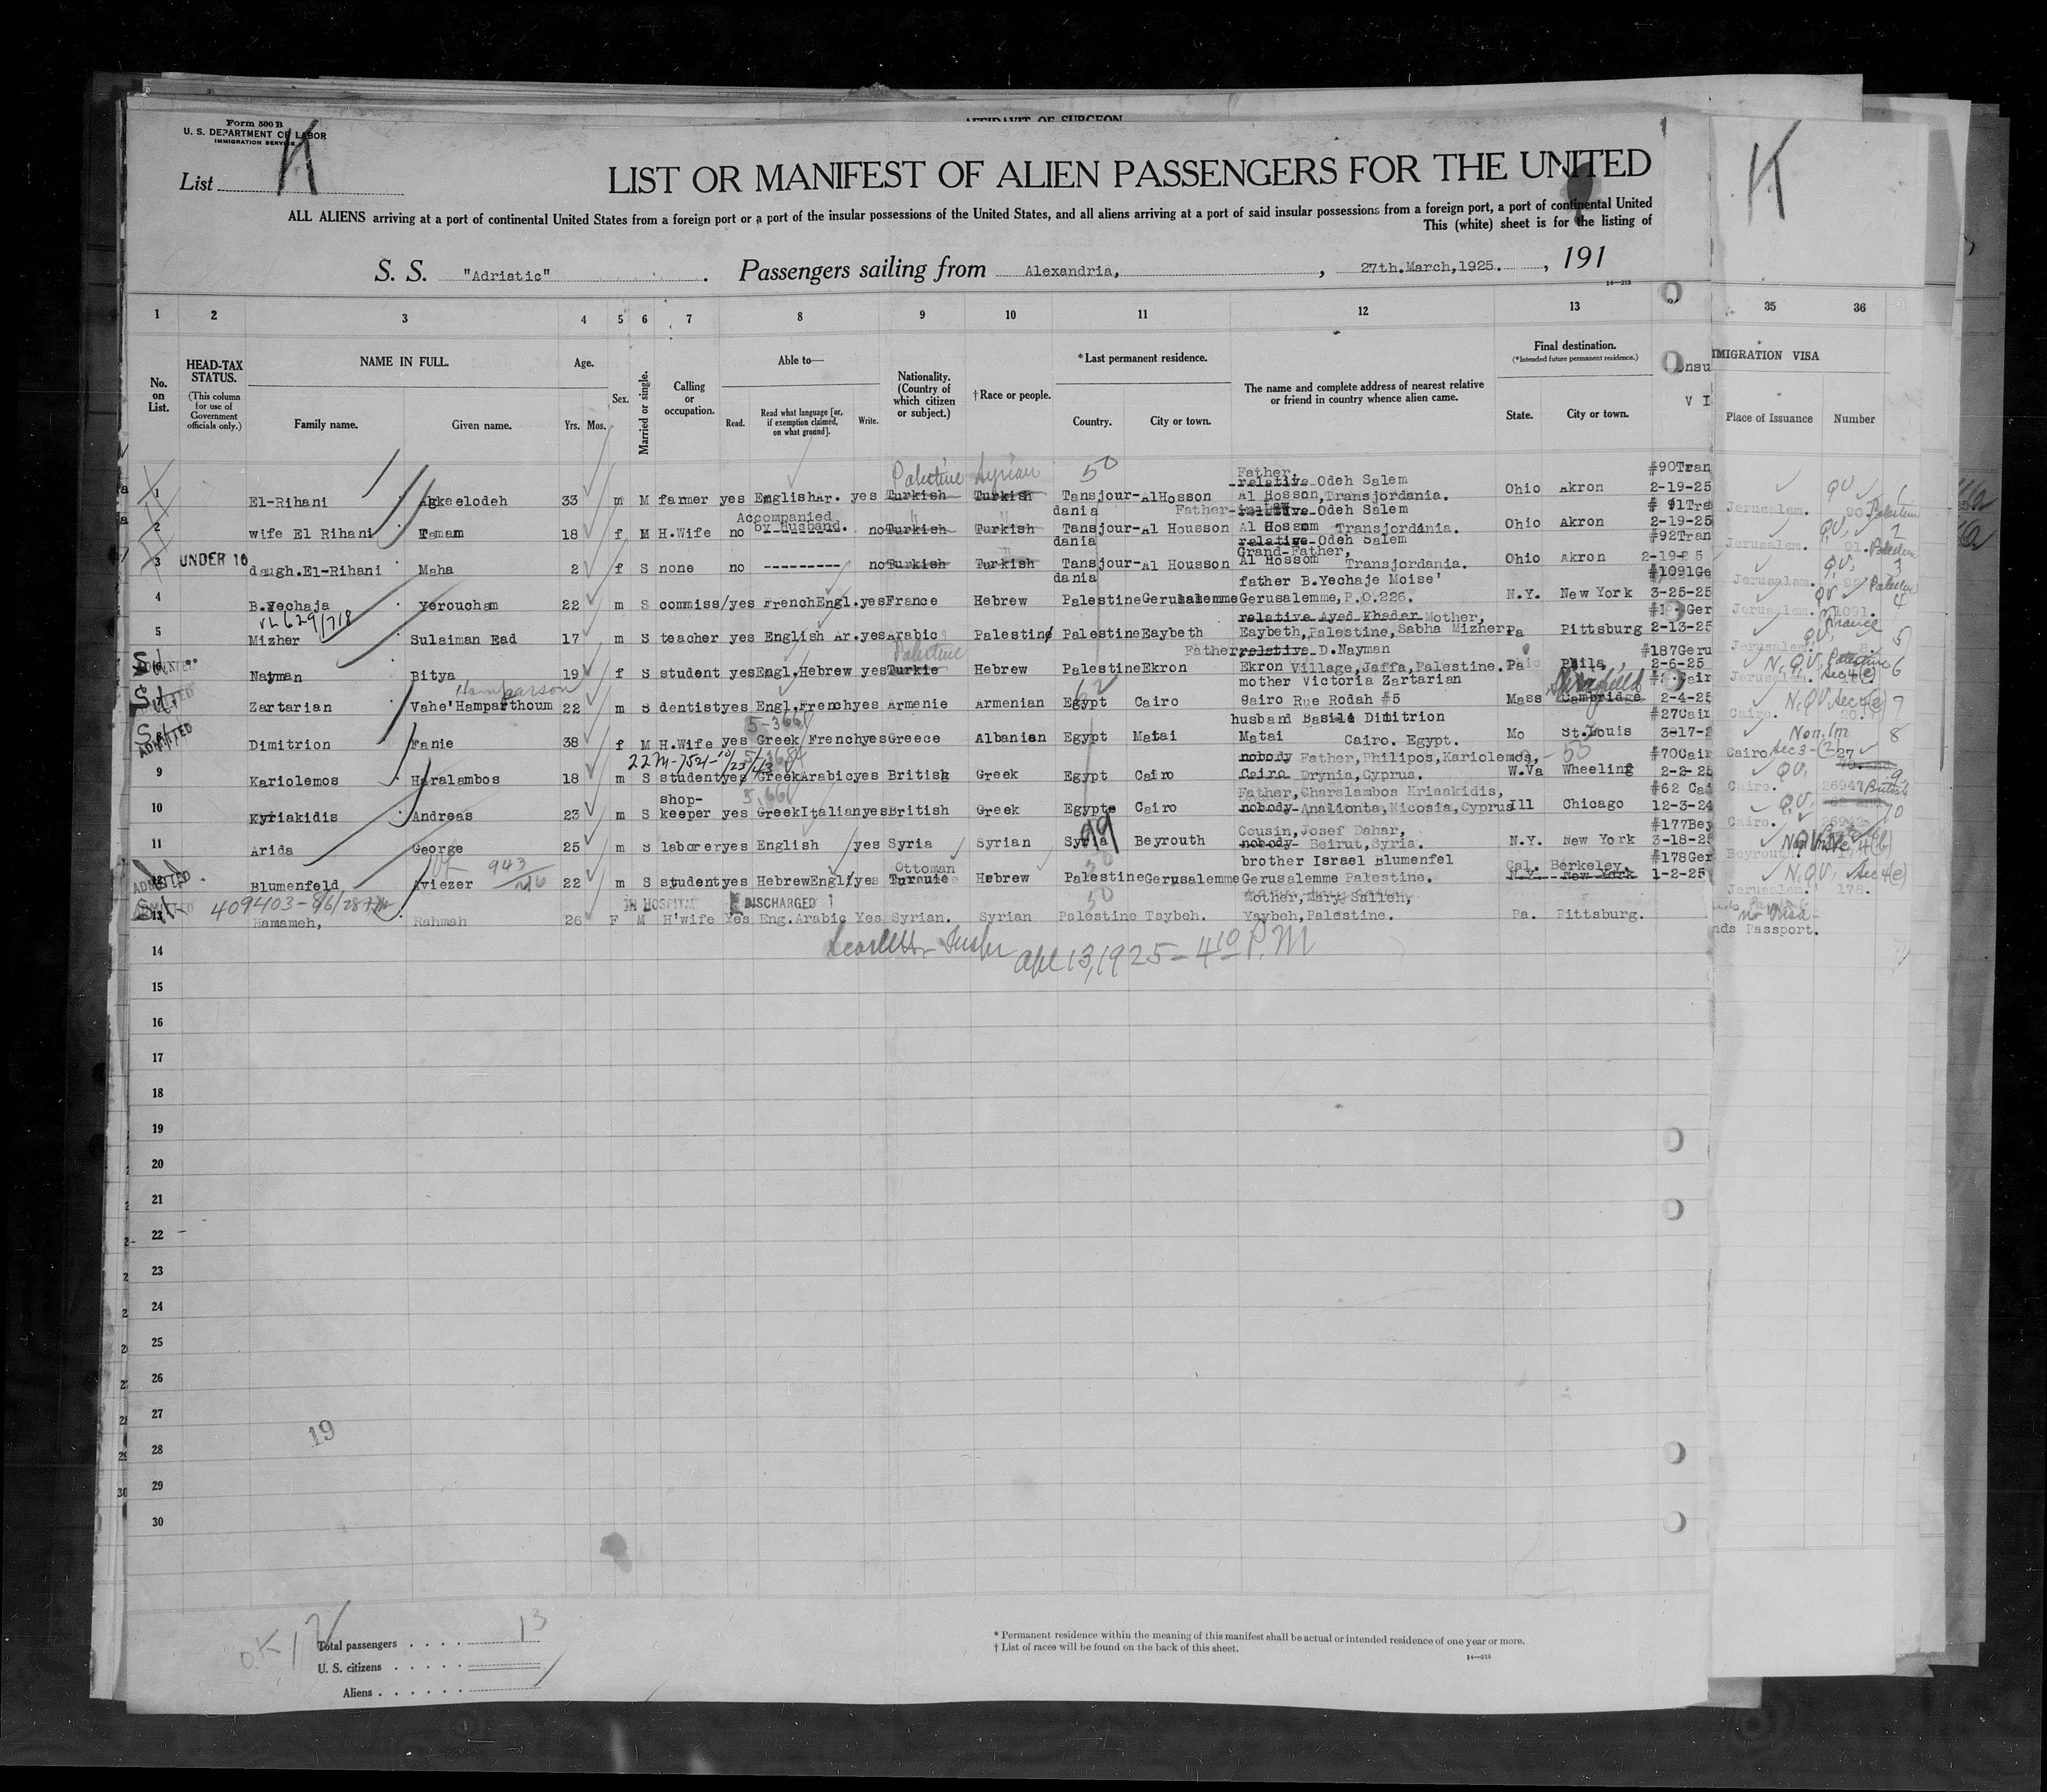 AFFIDAVIT OF SURGEON
Form 500 B
U. S. DEPARTMENT OF LABOR
IMMIGRATION SERVICE
List K
K
LIST OR MANIFEST OF ALIEN PASSENGERS FOR THE UNITED
ALL ALIENS arriving at a port of continental United States from a foreign port or a port of the insular possessions of the United States, and all aliens arriving at a port of said insular possessions from a foreign port, a port of continental United
This (white) sheet is for the listing of
S. S. "Adriatic" . Passengers sailing from Alexandria, , 27th.March,1925. , 191
14—213
1 2 3 4 5 6 7 8 9 10 11 12 13 35 36
No. on List.
HEAD-TAX STATUS. (This column for use of Government officials only.)
NAME IN FULL. Family name. Given name.
Age. Yrs. Mos.
Sex.
Married or single.
Calling or occupation.
Able to— Read. Read what language [or, if exemption claimed, on what ground]. Write.
Nationality. (Country of which citizen or subject.)
†Race or people.
*Last permanent residence. Country. City or town.
The name and complete address of nearest relative or friend in country whence alien came.
Final destination. (*Intended future permanent residence.) State. City or town.
MMIGRATION VISA Place of Issuance Number
Palestine Syrian 50 Father, #90Tran
1 El-Rihani Agkaelodeh 33 m M farmer yes EnglishAr. yes Turkish Turkish Tansjour- AlHosson relative Odeh Salem Ohio Akron 2-19-25
dania Al Hosson, Transjordania. Jerusalem. 90 Palestine
Accompanied Father-in-Law #91Tra
2 wife El Rihani Tamam 18 f M H.Wife no by Husband. no Turkish Turkish Tansjour- Al Housson relative Odeh Salem Ohio Akron 2-19-25
dania Al Hossom Transjordania. Jerusalem. 91. Palestine
UNDER 16 Grand-Father, #92Tran
3 daugh.El-Rihani Maha 2 f S none no --------- no Turkish Turkish Tansjour- Al Housson relative Odeh Salem Ohio Akron 2-19-25
dania Al Hossom Transjordania. Jerusalem. Palestine
father B.Yechaje Moise' #1091Ge
4 B.Yechaja Yeroucham 22 m S commiss/ yes FrenchEngl. yes France Hebrew Palestine Gerusalemme Gerusalemme,P.O.226. N.Y. New York 3-25-25
Jerusalem. 1091. France
relative Ayed Khadar Mother,
5 Mizher Sulaiman Ead 17 m S teacher yes English Ar. yes Arabic Palestine Palestine Eaybeth Eaybeth,Palestine,Sabha Mizher Pa Pittsburg 2-13-25
Palestine Father relative D.Nayman #187Geru
ADMITTED Nayman Bitya 19 f S student yes Engl.Hebrew yes Turkie Hebrew Palestine Ekron Ekron Village,Jaffa,Palestine. Pa Phila., 2-6-25
N.QV, Sec 4(e) 6 Jerusalem.
Hamparson mother Victoria Zartarian
Zartarian Vahe'Hamparthoum 22 m S dentist yes Engl.French yes Armenie Armenian Egypt Cairo Cairo Rue Rodah #5 Mass Cambridge 2-4-25
N.QV Sec 4(e) 7 Cairo. 20.
husband Basile Dimitrion #27Cair
ADMITTED Dimitrion Fanie 38 f M H.Wife yes Greek French yes Greece Albanian Egypt Matai Matai Cairo. Egypt. Mo St.Louis
Non.Im 8 Cairo Sec 3-(2) 27
nobody Father,Philipos,Kariolemos, #70Cair
9 Kariolemos Haralambos 18 m S student yes GreekArabic yes British Greek Egypt Cairo Cairo Drynia,Cyprus. W.Va Wheeling 2-2-25
QV, 9 Cairo. 26941 British
shop- Father,Charalambos Kriaakidis, #62 Cai
10 Kyriakidis Andreas 23 m S keeper yes GreekItalian yes British Greek Egypte Cairo nobody Analionta,Nicosia,Cyprus Ill Chicago 12-3-24
QV, 10 Cairo. 26942
49 Cousin,Josef Dahar, #177Bey
11 Arida George 25 m S laborer yes English yes Syria Syrian Syria Beyrouth nobody Beirut,Syria. N.Y. New York 3-18-25
Beyrouth
943 Ottoman brother Israel Blumenfel Cal. Berkeley. #178Ger
ADMITTED 12 Blumenfeld Aviezer 22 m S student yes HebrewEngl/ yes Turquie Hebrew Palestine Gerusalemme Gerusalemme Palestine. N.Y. New York 1-2-25
N.QV, Sec 4(e) Jerusalem. 178.
IN HOSPITAL DISCHARGED 50 Mother,Mary Salleh,
13 Hamameh, Rahmah 26 F M H'wife Yes Eng.Arabic Yes Syrian. Syrian Palestine Tsybeh. Yaybeh,Palestine. Pa. Pittsburg.
no Visa
nds Passport.
14 Apl 13,1925 - 4 10 P.M
15
16
17
18
19
20
21
22
23
24
25
26
27
28
29
30
19
OK
Total passengers . . . . 13
U. S. citizens . . . . .
Aliens . . . . . .
* Permanent residence within the meaning of this manifest shall be actual or intended residence of one year or more.
† List of races will be found on the back of this sheet.
14—213